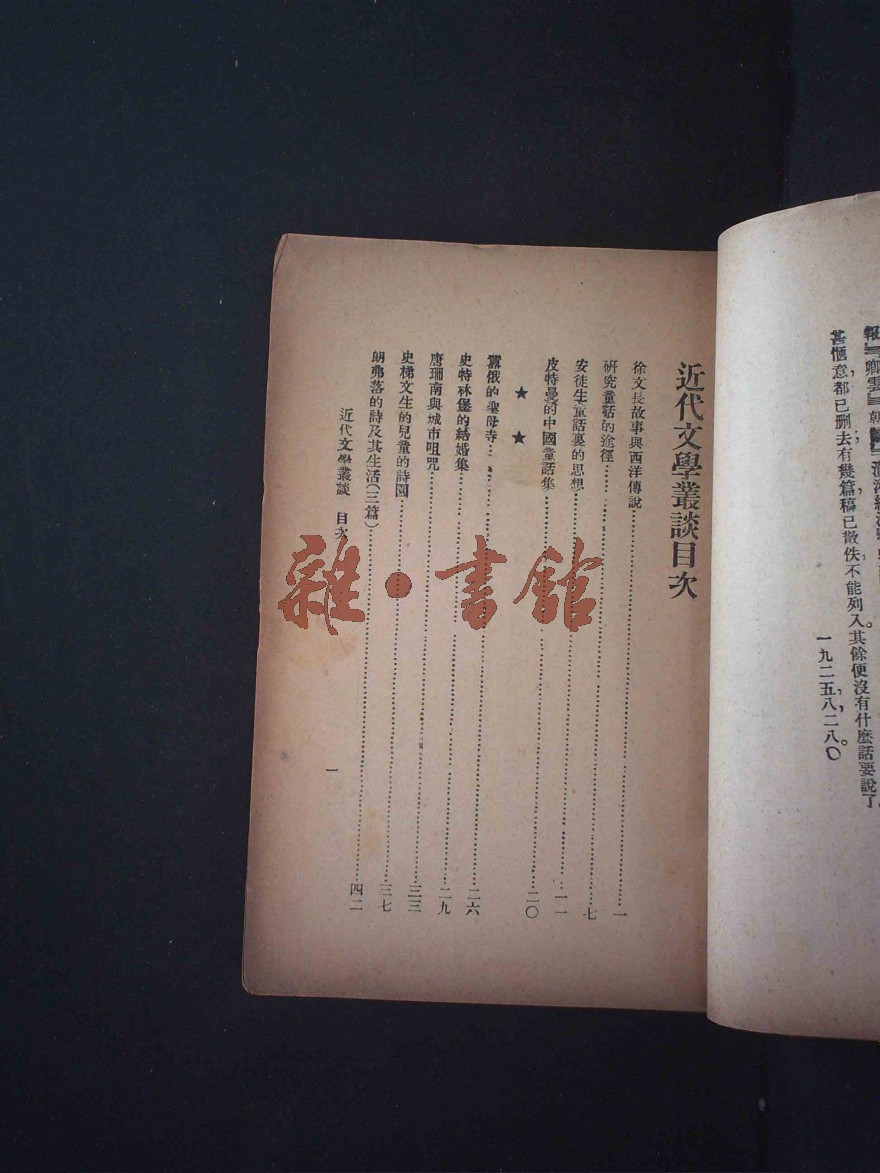 甚愜意都已刪去有幾篇稿已散佚不能列入。其餘便沒有什麼話要說了。
一九二五,八,二八。
近代文學叢談目次
徐文長故事與西洋傳說……一
研究童話的途徑……七
安徒生童話裏的思想……一一
皮特曼的中國童話集……二〇
★ ★
囂俄的聖母寺……二六
史特林堡的結婚集……二九
唐珊南與城市咀咒……三三
史梯文生的兒童的詩園……三七
朗弗落的詩及其生活(三篇)……四二
近代文學叢談 目次
一
雜·書館